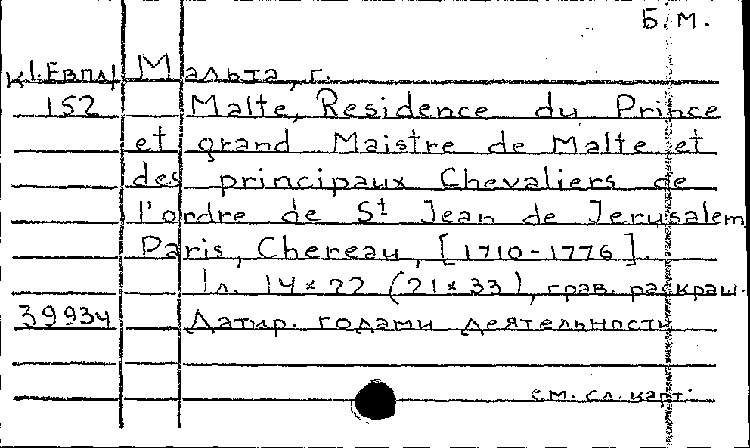 Б.М.
К1.Евпл1 Мальта, г.
152 Malte, Residence du Prince
et grand Maistre de Malte et
des principaux Chevaliers de
l'ordre de St Jean de Jerusalem
Paris, Chereau, [1710-1776].
1 л. 14×22 (21×33), грав. раскраш.
39934 Датир. годами деятельности
см. сл. карт.